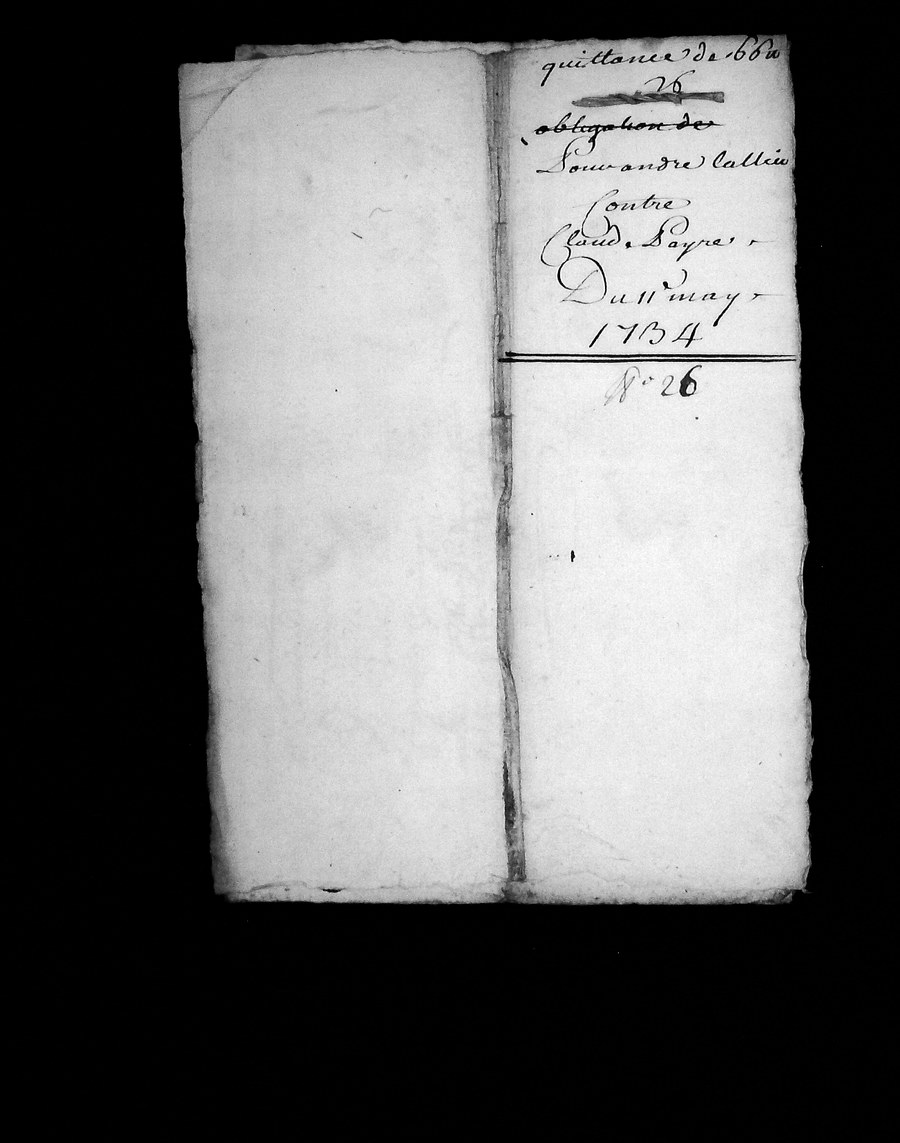 quittance de 66 tt
26
obligation de
Pour andre Callieu
Contre
Claude Payre
Du 11e may
1734
No 26